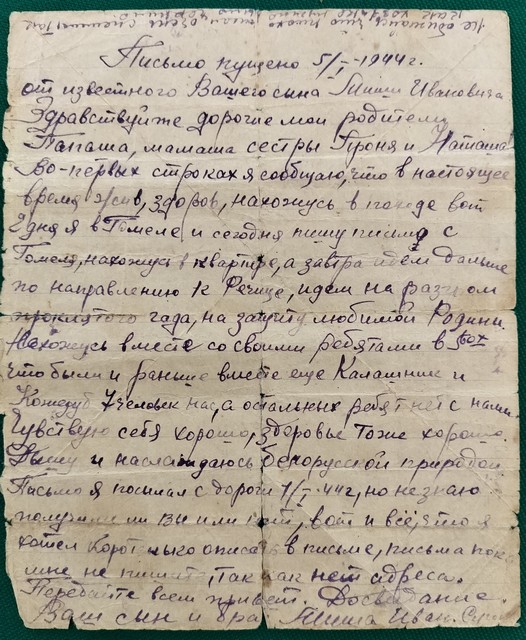 Письмо пущено 5/I-1944г.
от известного Вашего сына Миши Ивановича
Здравствуйте дорогие мои родители
Папаша, мамаша сестры Проня и Наташа
Во-первых строках я сообщаю, что в настоящее
время жив, здоров, нахожусь в походе вот
2 дня я в Гомеле и сегодня пишу письмо с
Гомеля, нахожусь в квартире, а завтра идем дальше
по направлению к Речице, идем на разгром
проклятого гада, на защиту любимой Родины.
Нахожусь вместе со своими ребятами в
что были и раньше вместе еще Калашник и
Кожедуб 7 человек нас, а остальных ребят нет с нами.
Чувствую себя хорошо, здоровье тоже хорошо.
Дышу и наслаждаюсь белорусской природой.
Письмо я посылал с дороги 1/I-44г, но не знаю
получили ли вы или нет, вот и всё, что я
хотел коротенько описать в письме, письма пока
мне не пишите, так как нет адреса.
Передайте всем привет. Досвидание.
Ваш сын и брат Миша Иван.